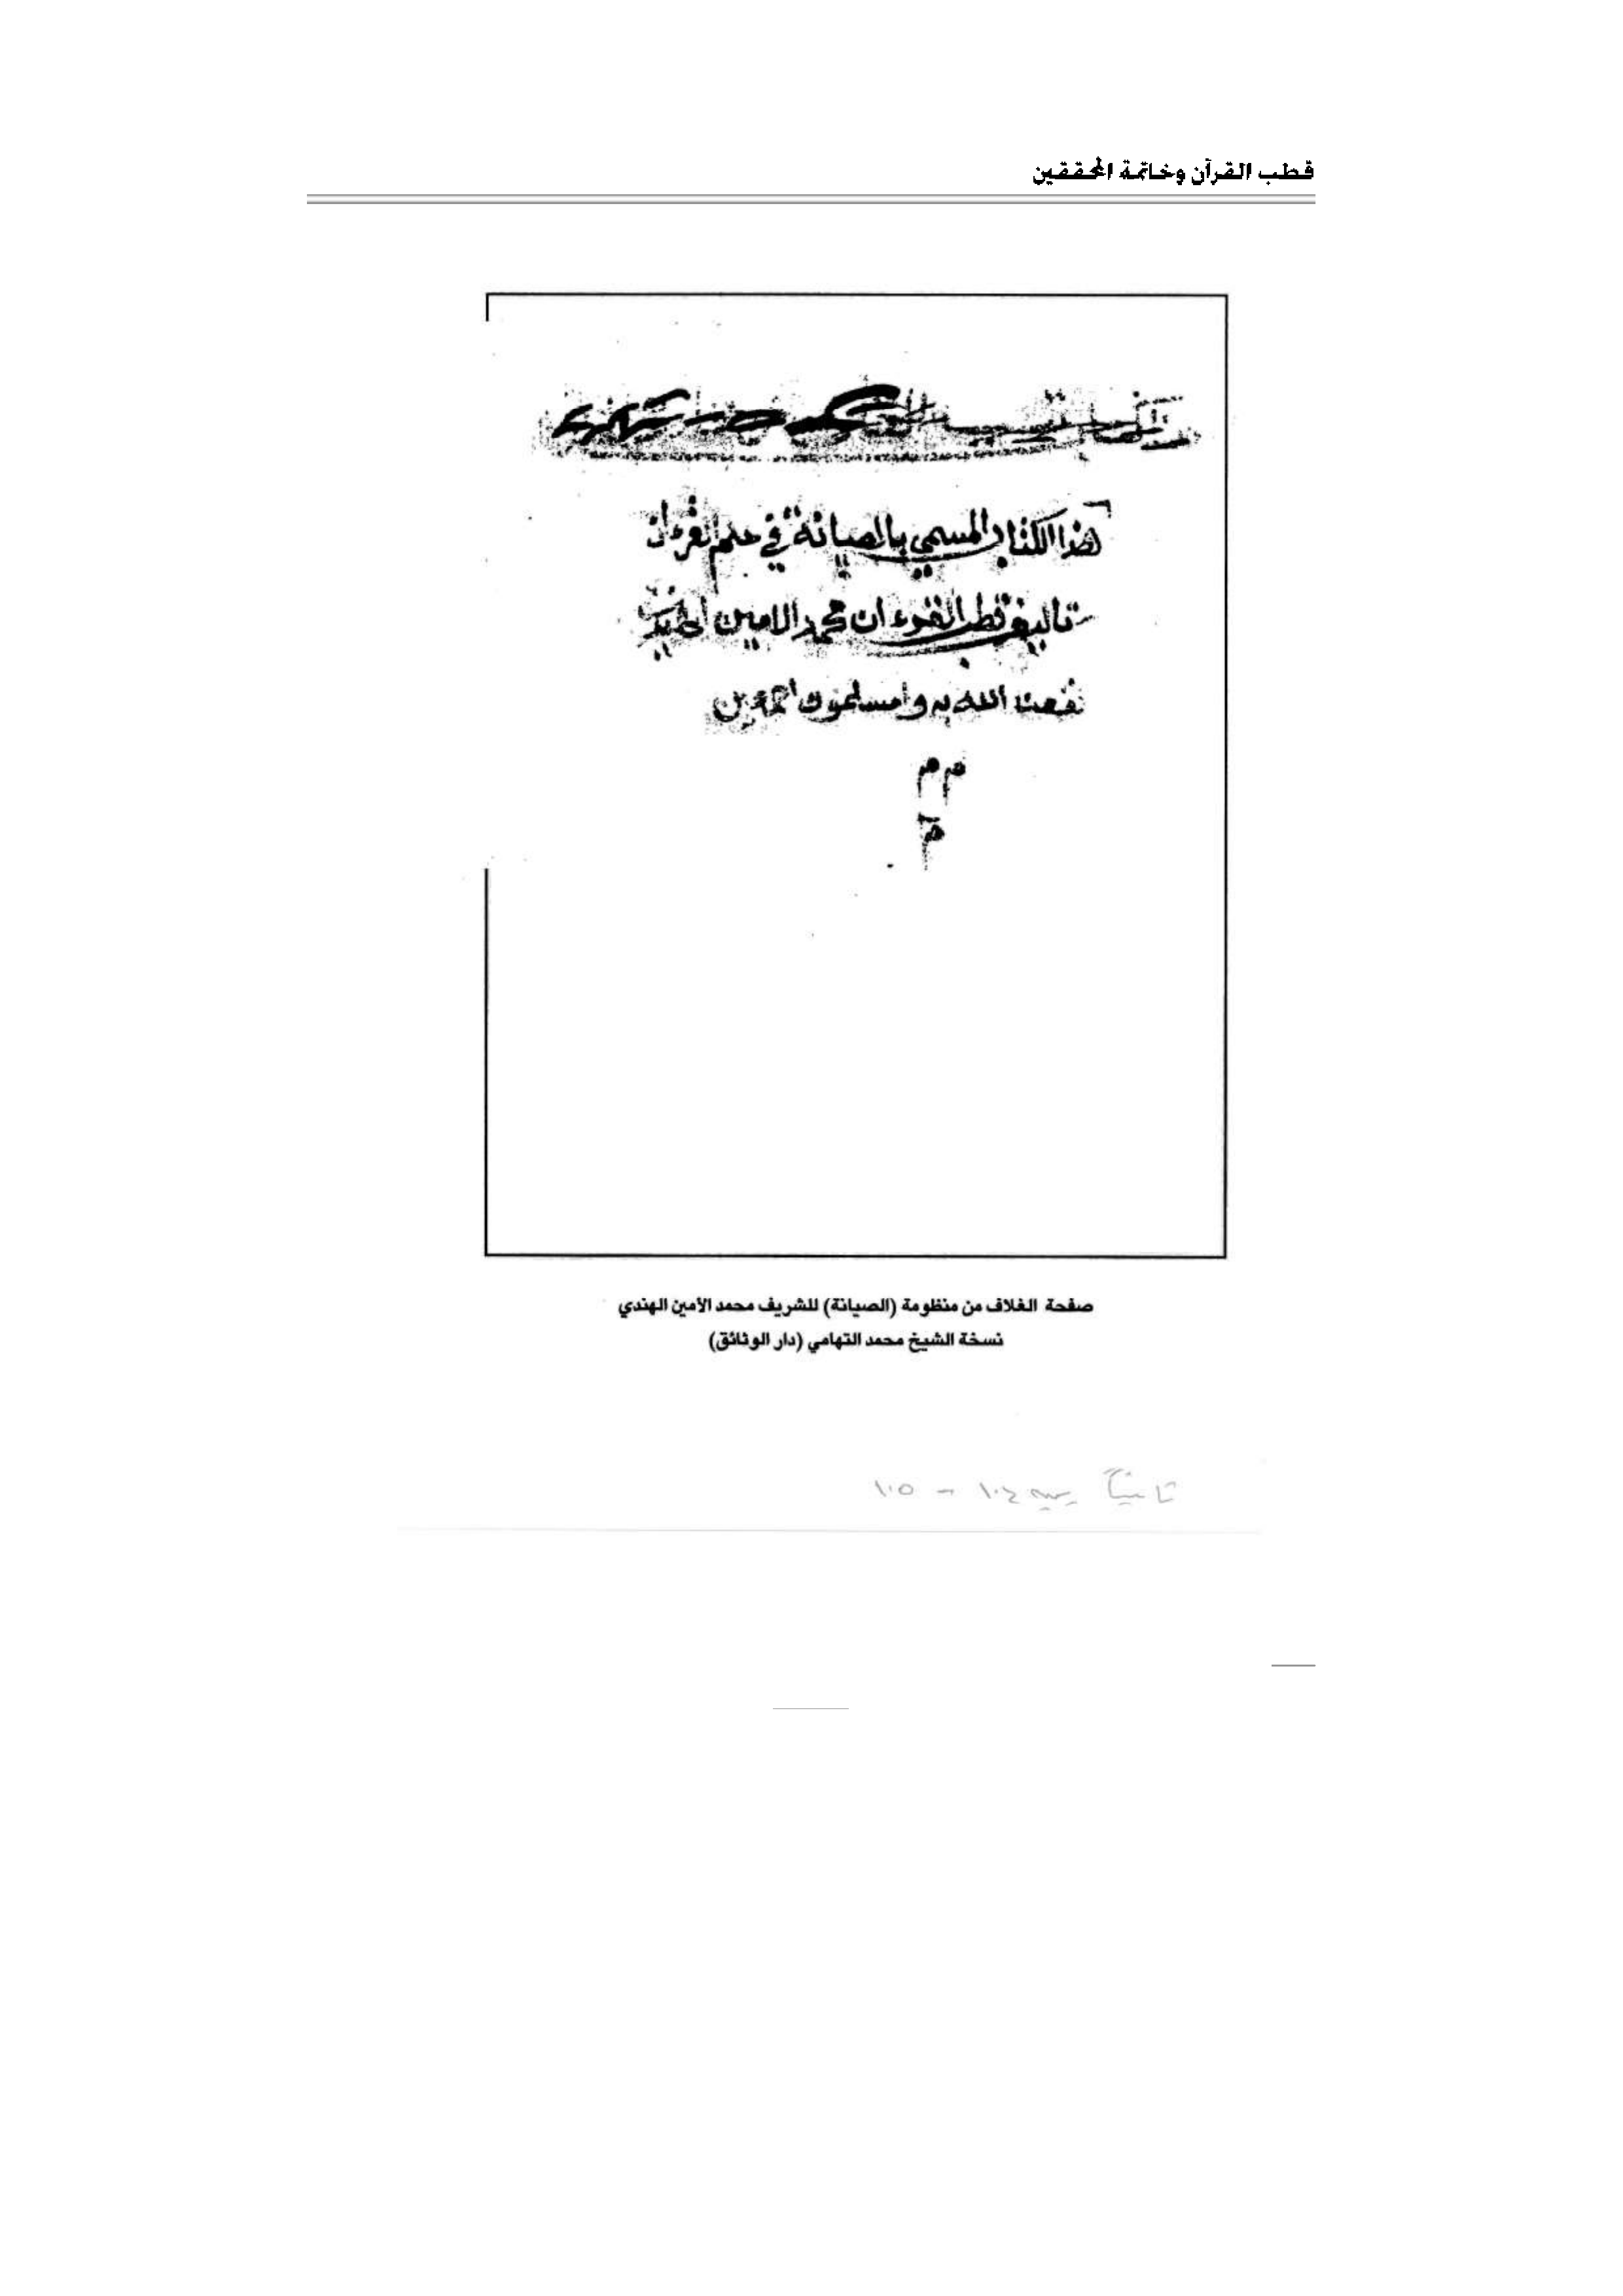 قطب القرآن وخاتمة المحققين
هذا الكتاب المسمي بالصيانة في علم القرءان
تاليف قطب القرءان محمد الامين الهندي
نفعنا الله به وامسلمون اجمعين
م م
م
صفحة الغلاف من منظومة (الصيانة) للشريف محمد الأمين الهندي
نسخة الشيخ محمد التهامي (دار الوثائق)
ثانياً بين ١٠٤ - ١٠٥